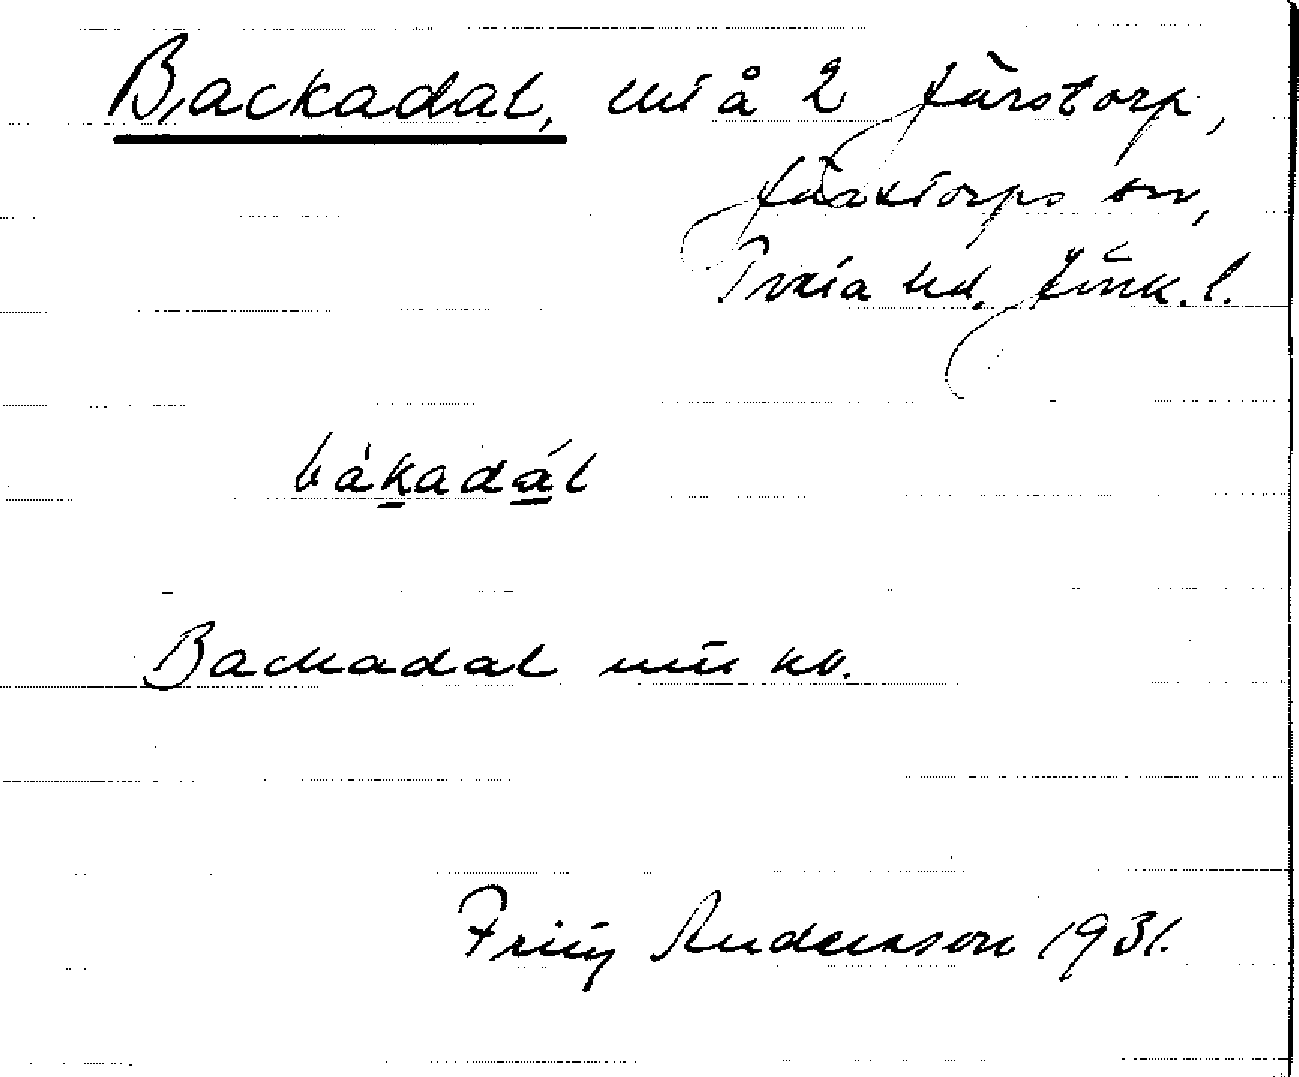 Backadal, å 2 Järstorp,
Järstorps sn,
Tveta hd. Jönk. l.
bàkadál
Backadal hd.
Fritz Andersson 1931.